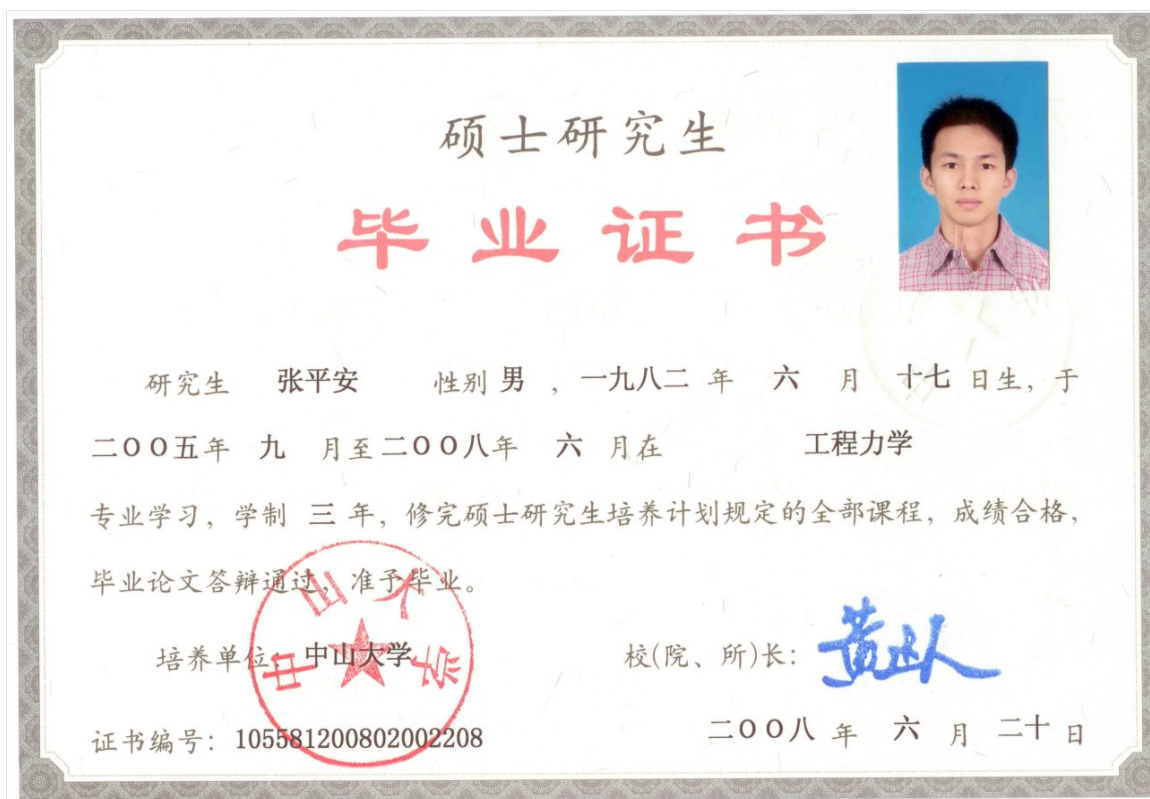 硕士研究生
毕业证书
研究生 张平安 性别 男 ，一九八二 年 六 月 十七 日生，于
二〇〇五年 九 月至二〇〇八年 六 月在 工程力学
专业学习，学制 三 年，修完硕士研究生培养计划规定的全部课程，成绩合格，
毕业论文答辩通过，准予毕业。
中山大学
培养单位：中山大学 校(院、所)长：黄达人
证书编号：105581200802002208 二〇〇八 年 六 月 二十 日